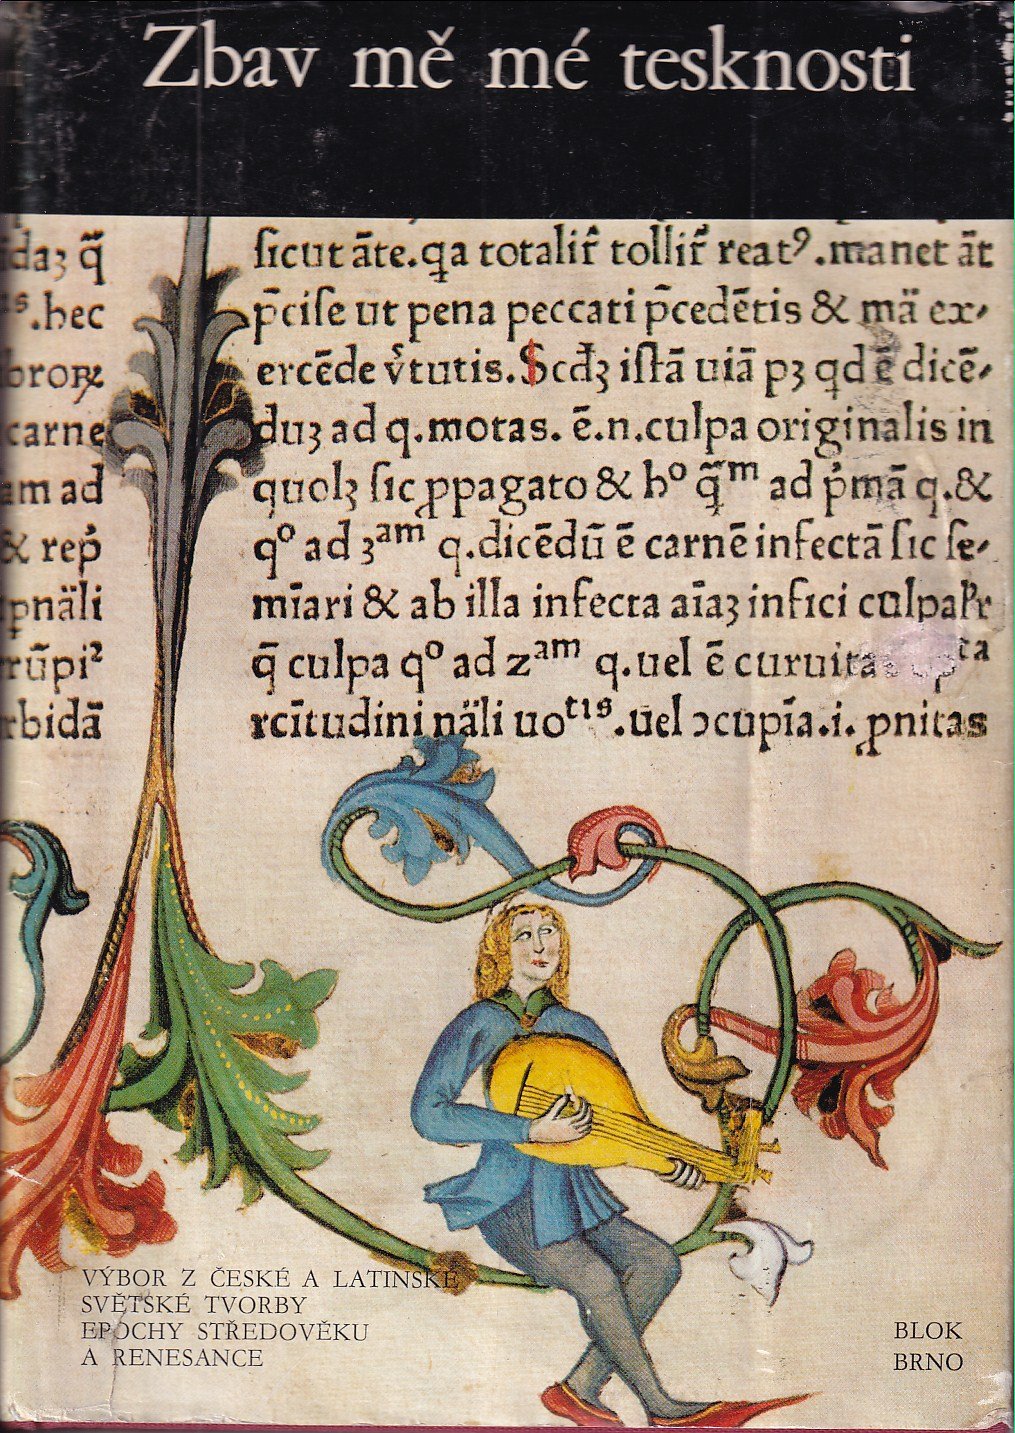 Zbav mě mé tesknosti
daꝫ q̃
.hec
broꝝ
carne
am ad
& rep̓
pnäli
rũpi²
rbidã
ſicut ãte.qa totalir̃ tollir̃ reatꝰ.manet ãt
p̃ciſe ut pena peccati p̃cedẽtis & mä ex⸗
ercẽde v̓tutis.Scđꝫ iſtã uiã pꝫ qd ẽ dicẽ⸗
duꝫ ad q.motas. ẽ.n.culpa originalis in
quolꝫ ſic ꝓpagato & hº q̃ᵐ ad p̓mã q.&
qº ad ꝫᵃᵐ q.dicẽdũ ẽ carnẽ infectã ſic ſe⸗
mĩari & ab illa infecta aĩaꝫ infici culpa
q̃ culpa qº ad zᵃᵐ q.uel ẽ curuitas
rcĩtudini näli uoᵗⁱˢ.uel ɔcupĩa.i.ꝓnitas
VÝBOR Z ČESKÉ A LATINSKÉ
SVĚTSKÉ TVORBY
EPOCHY STŘEDOVĚKU
A RENESANCE
BLOK
BRNO